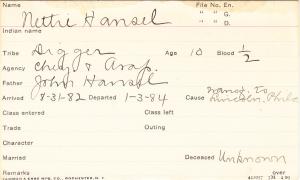 Name Nettie Hansel File No. En.
" " G.
" " D.
Indian name
Tribe Digger Age 10 Blood 1/2
Agency Chey & Arap.
Father John Hansel
Arrived 8-31-82 Departed 1-3-84 Cause transf. to Lincoln, Phila
Class entered Class left
Trade Outing
Character
Married Deceased Unknown
Remarks